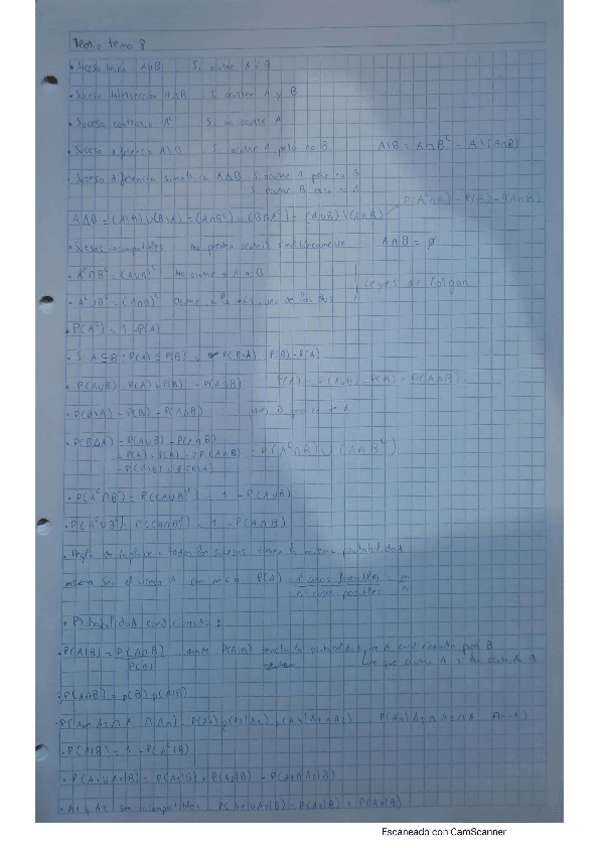 Teoria tema 8
• Suceso unión A∪B Si ocurre A o B
• Suceso Intersección A∩B Si ocurre A y B
• Suceso contrario Aᶜ Si no ocurre A
• Suceso diferencia A\B Si ocurre A pero no B A\B = A∩Bᶜ = A\(A∩B)
• Suceso diferencia simétrica A∆B Si ocurre A pero no B
Si ocurre B pero no A
A∆B = (A\B)∪(B\A) = (A∩Bᶜ)∪(B∩Aᶜ) = (A∪B)\(A∩B) P(Aᶜ∩B) = P(B) - P(A∩B)
• Sucesos incompatibles no pueden ocurrir simultáneamente A∩B = ∅
• Aᶜ∩Bᶜ = (A∪B)ᶜ No ocurre ni A ni B
• Aᶜ∪Bᶜ = (A∩B)ᶜ Ocurre a lo más uno de los dos Leyes de Morgan
• P(Aᶜ) = 1 - P(A)
• Si A⊆B : P(A) ≤ P(B) y P(B\A) = P(B) - P(A)
• P(A∪B) = P(A) + P(B) - P(A∩B) P(A) = P(A∪B) - P(B) + P(A∩B)
• P(B\A) = P(B) - P(A∩B)
• P(B∆A) = P(A∪B) - P(A∩B)
= P(A) + P(B) - 2P(A∩B) = P(Aᶜ∩B)∪(A∩Bᶜ)
= P(A\B) + P(B\A)
• P(Aᶜ∩Bᶜ) = P((A∪B)ᶜ) = 1 - P(A∪B)
• P(Aᶜ∪Bᶜ) = P((A∩B)ᶜ) = 1 - P(A∩B)
• Regla de Laplace : todos los sucesos tienen la misma probabilidad
Sea el suceso A con P(A) = nº casos favorables / nº casos posibles = m / n
• Probabilidad condicionada :
• P(A|B) = P(A∩B) / P(B) donde P(A|B) la probabilidad de A condicionado por B
que ocurra A si ha ocurrido B
• P(A∩B) = P(B) P(A|B)
• P(A|B) = 1 - P(Aᶜ|B)
• P(A₁∪A₂|B) = P(A₁|B) + P(A₂|B) - P(A₁∩A₂|B)
• A₁ y A₂ son incompatibles P(A₁∪A₂|B) = P(A₁|B) + P(A₂|B)
Escaneado con CamScanner